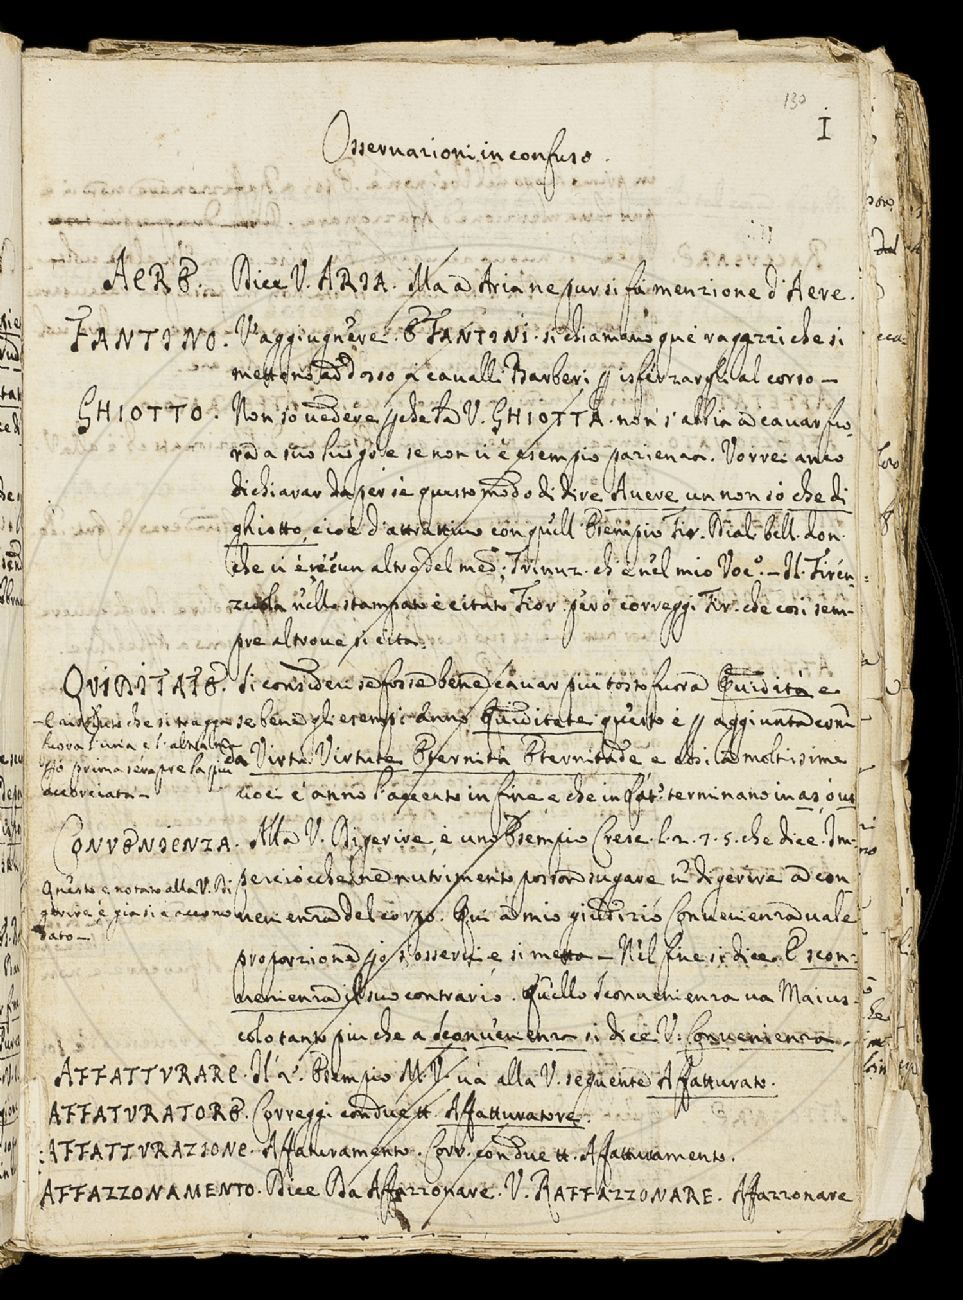 130
I
Osservazioni in confuso.
AERE. Dice V. ARIA. Ma a Aria ne pur si fa menzione d'Aere.
FANTINO. V'aggiugnerei. E FANTINI. si chiamano que' ragazzi che si
mettono addosso a cavalli Barberi p isferzargli al corso –
GHIOTTO. Non so vedere pche la V. GHIOTTA. non s'abbia a cavar fuo
ra a suo luogo e se non vi è esempio pazienza. Vorrei anco
dichiarar da per se questo modo di dire Avere un non so che di
ghiotto, cioè d'attrattivo con quell'Esempio Fir. Dial. bell. don.
che vi è ne un altro del med. Trinuz. ch'è nel mio Voc.º – Il Firen
zuola nello stampato è citato Fior. però correggi Fir. che così sem-
pre altrove si cita.
QUIDITATE. Si consideri se fosse bene cavar più tosto fuora Quidità e
se bene gli esempi anno Quiditate questo è p aggiunta com
da Virtù Virtute Eternità Eternitade e così la moltissime
cioè è anno l'accento in fine e che in Lat. terminano in as, o us
che si tragga
fuora l'una e l'altra
prima sempre la più
accorciata –
CONVENIENZA. Alla V. Digerire, è uno Esempio Cresc. l. 2. 7. 5. che dice. Im-
perciocchè ne nutrimento possono sugare nè digerire a con
venienza del corpo. Qui a mio giudizio Convenienza vale
proporzione po s'osservi, e si metta – Nel fine si dice. E scon-
venienza il suo contrario. Quello sconvenienza va Maius-
colo tanto più che a sconvenienza si dice V. Convenienza.
Questo e notato alla V. Di
gerire è già si è accomo
dato –
AFFATTURARE. Il 2º. Esempio M. V. va alla V. seguente Affatturato.
AFFATURATORE. Correggi con due tt. Affatturatore.
AFFATTURAZIONE. Affaturamento. Corr. con due tt. Affatturamento.
AFFAZZONAMENTO. Dice Da Affazzonare. V. RAFFAZZONARE. Affazzonare